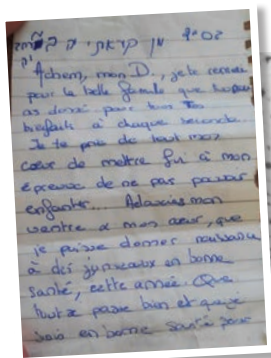 מן קראתי
Achem, mon D., je te remercie
pour la belle famille que tu
as donné pour tous Tes
bienfaits à chaque seconde...
Je te prie de tout mon
cœur de mettre fin à mon
épreuve de ne pas pouvoir
enfanter... Adoucies mon
ventre et mon cœur, que
je puisse donner naissance
à des jumeaux en bonne
santé, cette année. Que
tout se passe bien et que je
sois en bonne santé pour